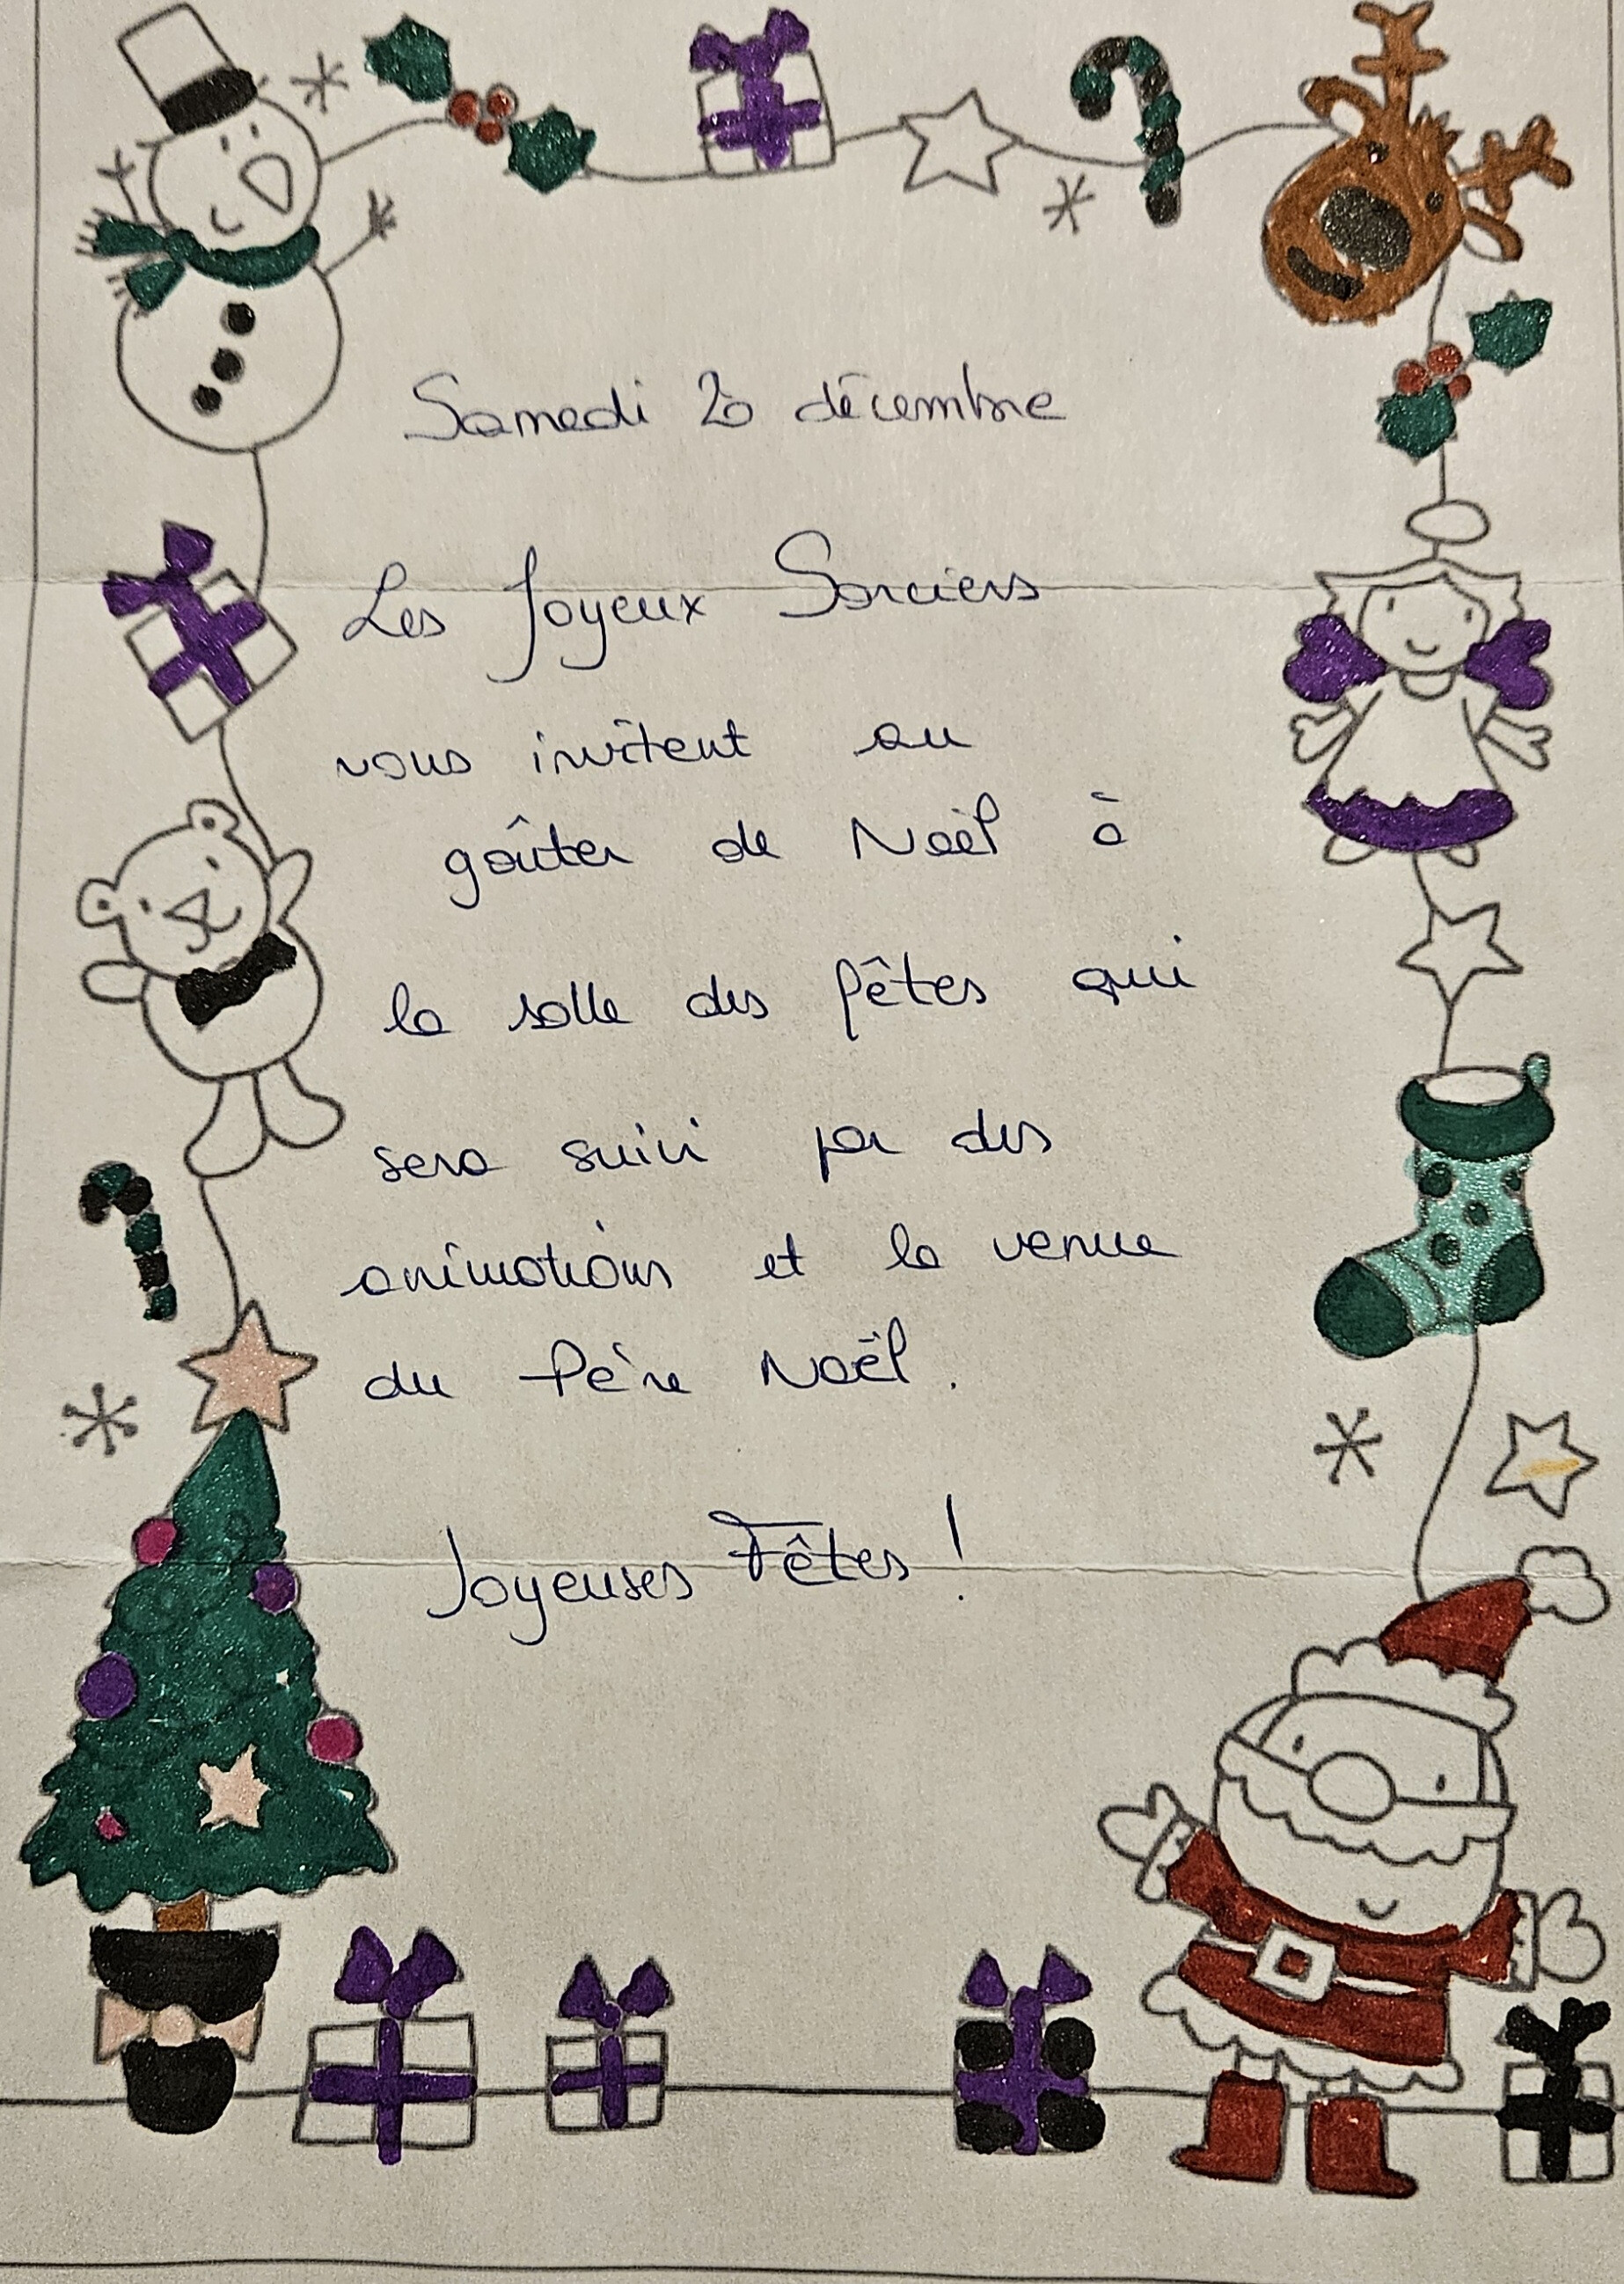 Samedi 20 décembre
Les Joyeux Sorciers
vous invitent au
goûter de Noël à
la salle des fêtes qui
sera suivi par des
animations et la venue
du Père Noël.
Joyeuses Fêtes !